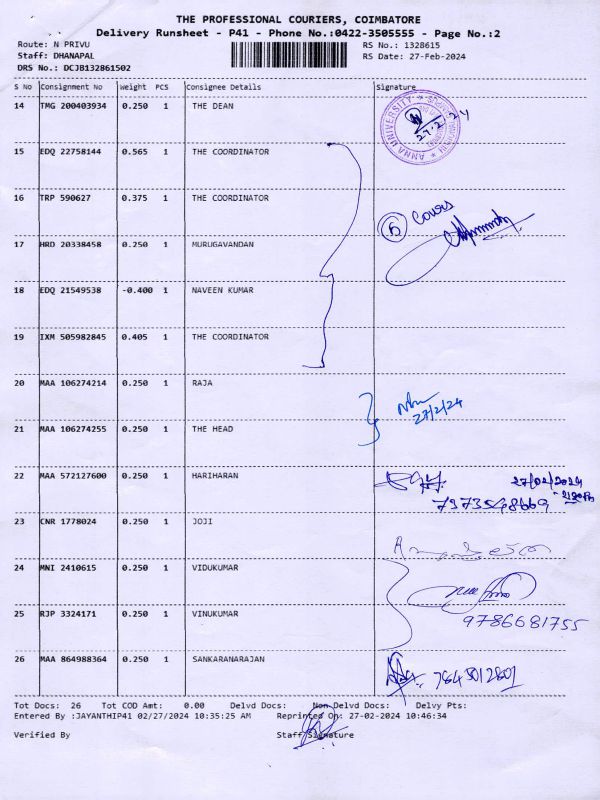 THE PROFESSIONAL COURIERS, COIMBATORE
Delivery Runsheet - P41 - Phone No.:0422-3505555 - Page No.:2
Route: N PRIVU RS No.: 1328615
Staff: DHANAPAL RS Date: 27-Feb-2024
DRS No.: DCJB132861502
S No Consignment No Weight PCS Consignee Details Signature
14 TMG 200403934 0.250 1 THE DEAN
ANNA UNIVERSITY
27.2.24
15 EDQ 22758144 0.565 1 THE COORDINATOR
16 TRP 590627 0.375 1 THE COORDINATOR
6 Cours
17 HRD 20338458 0.250 1 MURUGAVANDAN
18 EDQ 21549538 -0.400 1 NAVEEN KUMAR
19 IXM 505982845 0.405 1 THE COORDINATOR
20 MAA 106274214 0.250 1 RAJA
27/2/24
21 MAA 106274255 0.250 1 THE HEAD
22 MAA 572127600 0.250 1 HARIHARAN
27/02/2024
7373548669
23 CNR 1778024 0.250 1 JOJI
24 MNI 2410615 0.250 1 VIDUKUMAR
25 RJP 3324171 0.250 1 VINUKUMAR
9786681755
26 MAA 864988364 0.250 1 SANKARANARAJAN
7845012801
Tot Docs: 26 Tot COD Amt: 0.00 Delvd Docs: Non Delvd Docs: Delvy Pts:
Entered By :JAYANTHIP41 02/27/2024 10:35:25 AM Reprinted On: 27-02-2024 10:46:34
Verified By Staff Signature